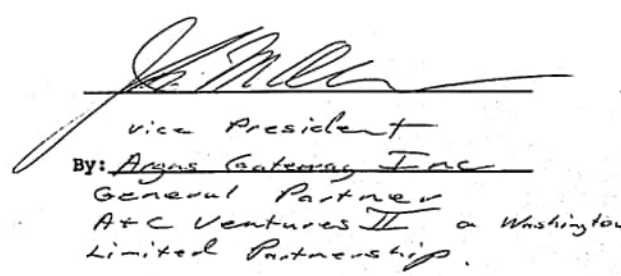 Vice President
By: Argus Gateway Inc
General Partner
A+C Ventures II a Washington
Limited Partnership.